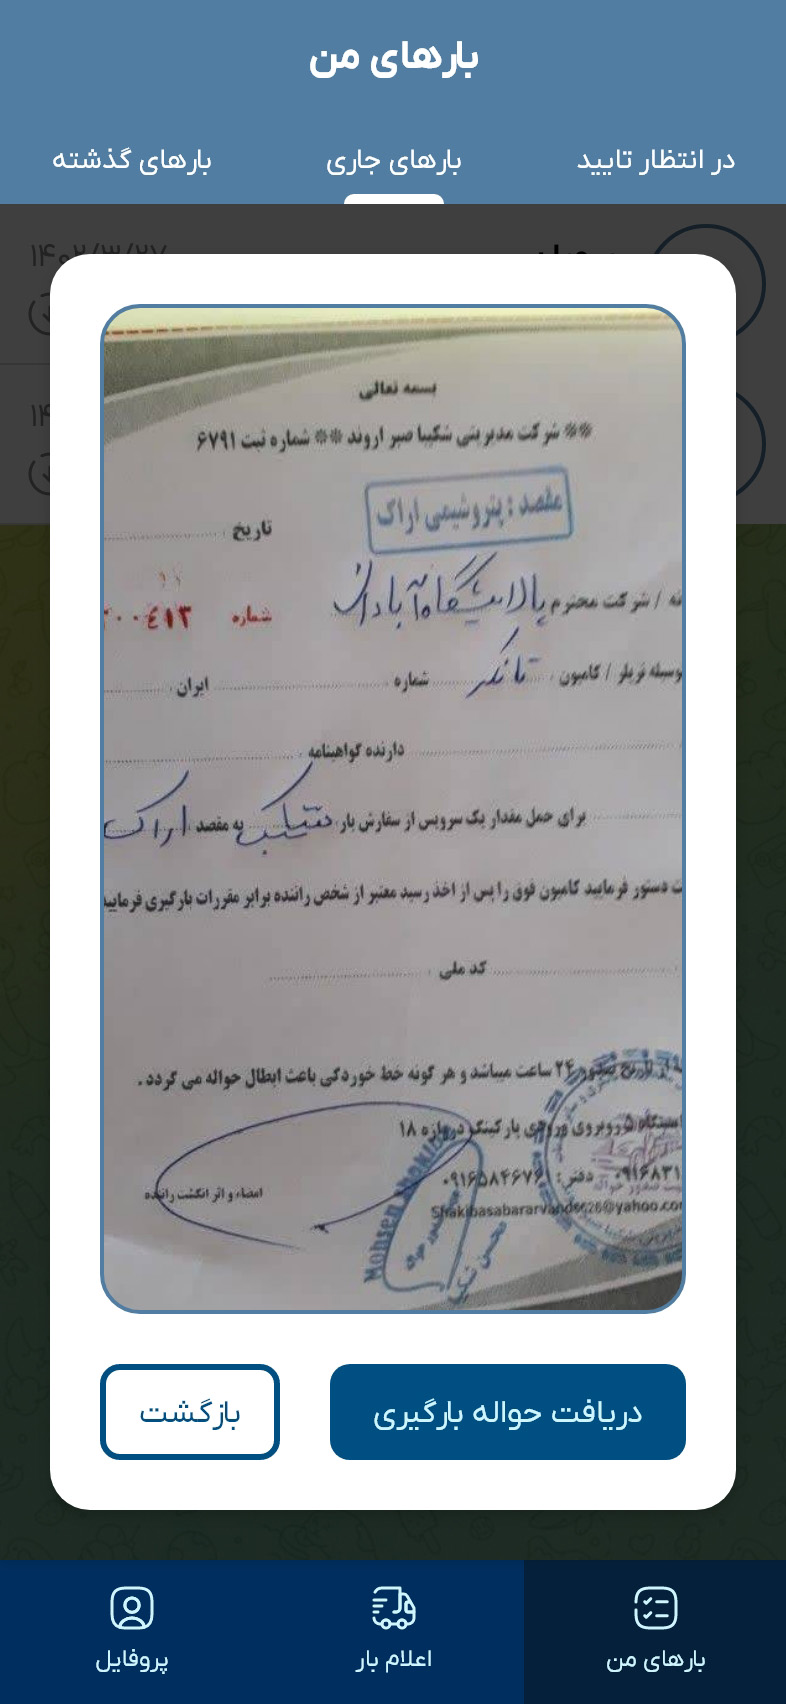 بارهای من
در انتظار تایید
بارهای جاری
بارهای گذشته
۱۴۰۲/۳/۲۷
بسمه تعالی
** شرکت مدیریتی شکیبا صبر اروند ** شماره ثبت ۶۷۹۱
مقصد : پتروشیمی اراک
تاریخ
/ شرکت محترم پالایشگاه آبادان
شماره ۰۰۴۱۳
تریلر / کامیون تانکر شماره ایران
دارنده گواهینامه
برای حمل مقدار یک سرویس از سفارش بار به مقصد اراک
دستور فرمایید کامیون فوق را پس از اخذ رسید معتبر از شخص راننده برابر مقررات بارگیری فرمایید
کد ملی
از تاریخ صدور ۲۴ ساعت میباشد و هر گونه خط خوردگی باعث ابطال حواله می گردد .
ایستگاه ۵ روبروی ورودی پارکینگ دروازه ۱۸
۰۹۱۶۸۳۱ دفتر: ۰۹۱۶۵۸۴۶۷۶
امضاء و اثر انگشت راننده
Shakibasabararvand5626@yahoo.co
Mohsen
دریافت حواله بارگیری
بازگشت
بارهای من
اعلام بار
پروفایل